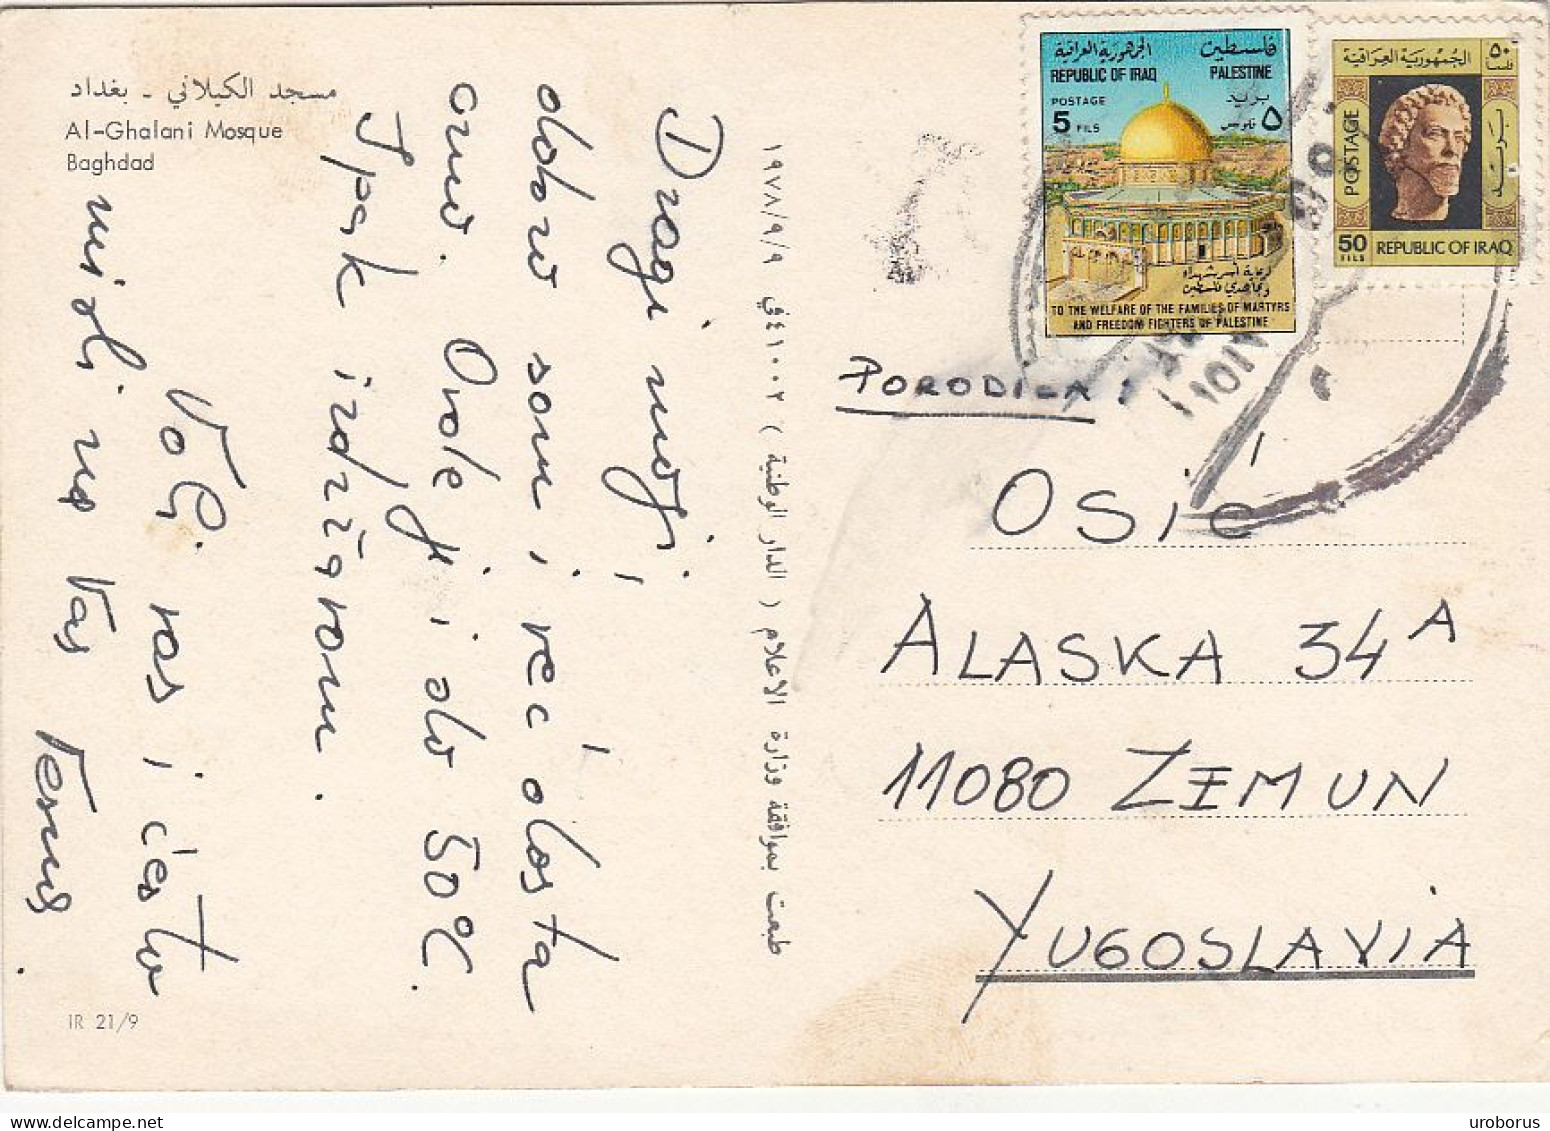 مسجد الكيلاني - بغداد
Al-Ghalani Mosque
Baghdad
Dragi moji,
dobro sam i već dosta
crno. Ovde je i do 50°C.
Ipak izdržavam.
Voli vas i često
misli na Vas
IR 21/9
طبعت بموافقة وزارة الاعلام ( الدار الوطنية ) ٤١٠٠٢ في ١٩٧٨/٩/٩
الجمهورية العراقية فلسطين
REPUBLIC OF IRAQ PALESTINE
POSTAGE بريد
5 FILS ٥ فلوس
لرعاية أسر شهداء
ومجاهدي فلسطين
TO THE WELFARE OF THE FAMILIES OF MARTYRS
AND FREEDOM FIGHTERS OF PALESTINE
الجمهورية العراقية ٥٠ فلسا
POSTAGE بريد
50 FILS REPUBLIC OF IRAQ
PORODICA:
OSIĆ
ALASKA 34A
11080 ZEMUN
YUGOSLAVIA
uroborus